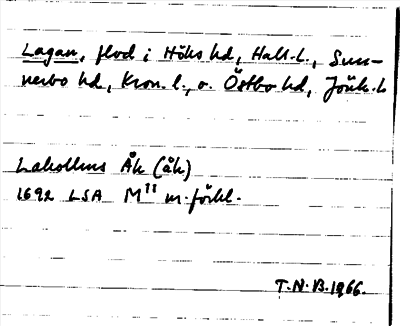 Lagan, flod i Höks hd, Hall. l., Sun-
nerbo hd, Kron. l., o. Östbo hd, Jönk. l.
Laholms Åk (åk)
1692 LSA M11 m. förkl.
T.N.B. 1966.